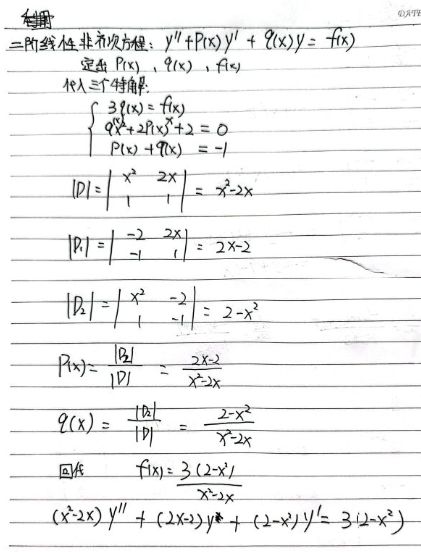 二阶线性非齐次方程: y'' + P(x) y' + q(x) y = f(x)
定出 P(x), q(x), f(x)
代入三个特解:
{ 3q(x) = f(x)
qx² + 2P(x)x + 2 = 0
P(x) + q(x) = -1
|D| = | x² 2x | = x² - 2x
| 1 1 |
|D₁| = | -2 2x | = 2x - 2
| -1 1 |
|D₂| = | x² -2 | = 2 - x²
| 1 -1 |
P(x) = |D₂| / |D| = 2x-2 / x²-2x
q(x) = |D₂| / |D| = 2-x² / x²-2x
回代 f(x) = 3(2-x²) / x²-2x
(x²-2x) y'' + (2x-2) y + (2-x²) y' = 3(2-x²)